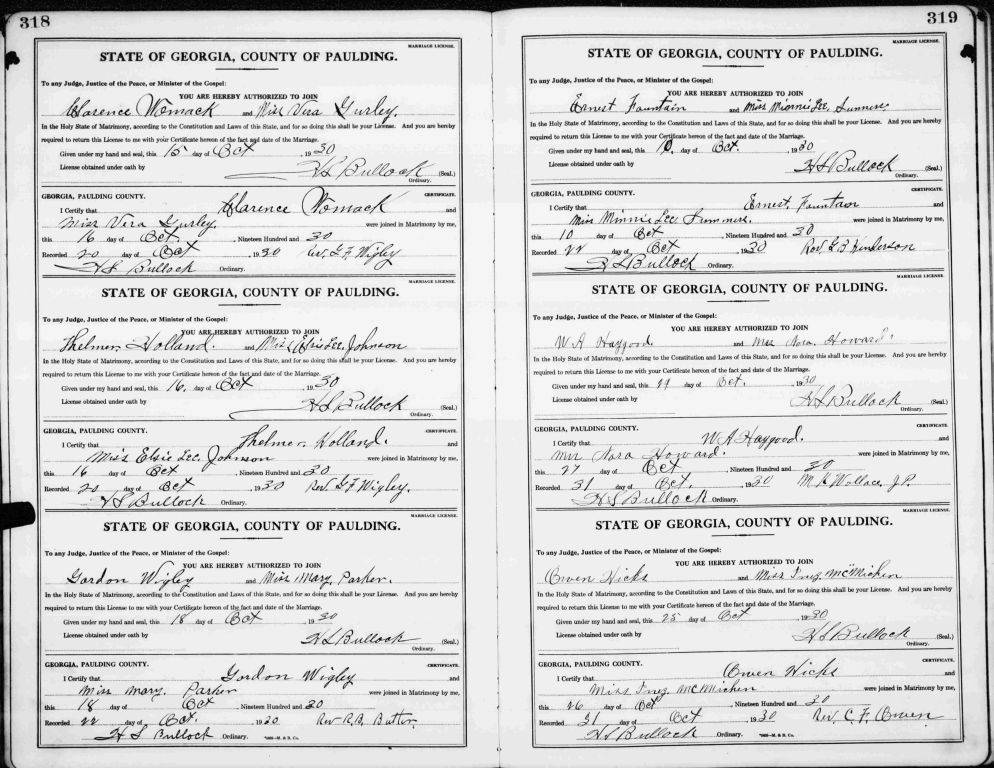 318
MARRIAGE LICENSE.
STATE OF GEORGIA, COUNTY OF PAULDING.
To any Judge, Justice of the Peace, or Minister of the Gospel:
YOU ARE HEREBY AUTHORIZED TO JOIN
Clarence Womack and Miss Vera Gurley.
In the Holy State of Matrimony, according to the Constitution and Laws of this State, and for so doing this shall be your License. And you are hereby
required to return this License to me with your Certificate hereon of the fact and date of the Marriage.
Given under my hand and seal, this 15 day of Oct, 1930
License obtained under oath by H S Bullock (Seal.)
Ordinary.
GEORGIA, PAULDING COUNTY. CERTIFICATE.
I Certify that Clarence Womack and
Miss Vera Gurley. were joined in Matrimony by me,
this 16 day of Oct., Nineteen Hundred and 30
Recorded 20 day of Oct 1930 Rev. G F Wigley
H S Bullock Ordinary.
MARRIAGE LICENSE.
STATE OF GEORGIA, COUNTY OF PAULDING.
To any Judge, Justice of the Peace, or Minister of the Gospel:
YOU ARE HEREBY AUTHORIZED TO JOIN
Thelmer Holland. and Miss Elsie Lee Johnson
In the Holy State of Matrimony, according to the Constitution and Laws of this State, and for so doing this shall be your License. And you are hereby
required to return this License to me with your Certificate hereon of the fact and date of the Marriage.
Given under my hand and seal, this 16. day of Oct, 1930
License obtained under oath by H S Bullock (Seal.)
Ordinary.
GEORGIA, PAULDING COUNTY. CERTIFICATE.
I Certify that Thelmer Holland. and
Miss Elsie Lee Johnson were joined in Matrimony by me,
this 16 day of Oct, Nineteen Hundred and 30
Recorded 20 day of Oct, 1930 Rev. G F Wigley.
H S Bullock Ordinary.
MARRIAGE LICENSE.
STATE OF GEORGIA, COUNTY OF PAULDING.
To any Judge, Justice of the Peace, or Minister of the Gospel:
YOU ARE HEREBY AUTHORIZED TO JOIN
Gordon Wigley and Miss Mary Parker.
In the Holy State of Matrimony, according to the Constitution and Laws of this State, and for so doing this shall be your License. And you are hereby
required to return this License to me with your Certificate hereon of the fact and date of the Marriage.
Given under my hand and seal, this 18 day of Oct, 1930
License obtained under oath by H S Bullock (Seal.)
Ordinary.
GEORGIA, PAULDING COUNTY. CERTIFICATE.
I Certify that Gordon Wigley and
Miss Mary. Parker were joined in Matrimony by me,
this 18 day of Oct, Nineteen Hundred and 30
Recorded 22 day of Oct. 1930 Rev R.B. Butler.
H S Bullock Ordinary.
319
MARRIAGE LICENSE.
STATE OF GEORGIA, COUNTY OF PAULDING.
To any Judge, Justice of the Peace, or Minister of the Gospel:
YOU ARE HEREBY AUTHORIZED TO JOIN
Ernest Fountain and Miss Minnie Lee Summers
In the Holy State of Matrimony, according to the Constitution and Laws of this State, and for so doing this shall be your License. And you are hereby
required to return this License to me with your Certificate hereon of the fact and date of the Marriage.
Given under my hand and seal, this 10. day of Oct., 1930
License obtained under oath by H S Bullock (Seal.)
Ordinary.
GEORGIA, PAULDING COUNTY. CERTIFICATE.
I Certify that Ernest Fountain and
Miss Minnie Lee Summers. were joined in Matrimony by me,
this 10 day of Oct, Nineteen Hundred and 30
Recorded 22 day of Oct 1930 Rev. G B
H S Bullock Ordinary.
MARRIAGE LICENSE.
STATE OF GEORGIA, COUNTY OF PAULDING.
To any Judge, Justice of the Peace, or Minister of the Gospel:
YOU ARE HEREBY AUTHORIZED TO JOIN
W A Haygood and Mrs Nora Howard.
In the Holy State of Matrimony, according to the Constitution and Laws of this State, and for so doing this shall be your License. And you are hereby
required to return this License to me with your Certificate hereon of the fact and date of the Marriage.
Given under my hand and seal, this day of Oct., 1930
License obtained under oath by H S Bullock (Seal.)
Ordinary.
GEORGIA, PAULDING COUNTY. CERTIFICATE.
I Certify that W A Haygood. and
Mrs Nora Howard. were joined in Matrimony by me,
this 27 day of Oct, Nineteen Hundred and 30
Recorded 31 day of Oct. 1930 M. H Wallace J.P.
H S Bullock Ordinary.
MARRIAGE LICENSE.
STATE OF GEORGIA, COUNTY OF PAULDING.
To any Judge, Justice of the Peace, or Minister of the Gospel:
YOU ARE HEREBY AUTHORIZED TO JOIN
Owen Hicks and Miss McMichen
In the Holy State of Matrimony, according to the Constitution and Laws of this State, and for so doing this shall be your License. And you are hereby
required to return this License to me with your Certificate hereon of the fact and date of the Marriage.
Given under my hand and seal, this 25 day of Oct, 1930
License obtained under oath by H S Bullock (Seal.)
Ordinary.
GEORGIA, PAULDING COUNTY. CERTIFICATE.
I Certify that Owen Hicks and
Miss McMichen were joined in Matrimony by me,
this 26 day of Oct, Nineteen Hundred and 30
Recorded 31 day of Oct, 1930 Rev. C. F. Owen
H S Bullock Ordinary.